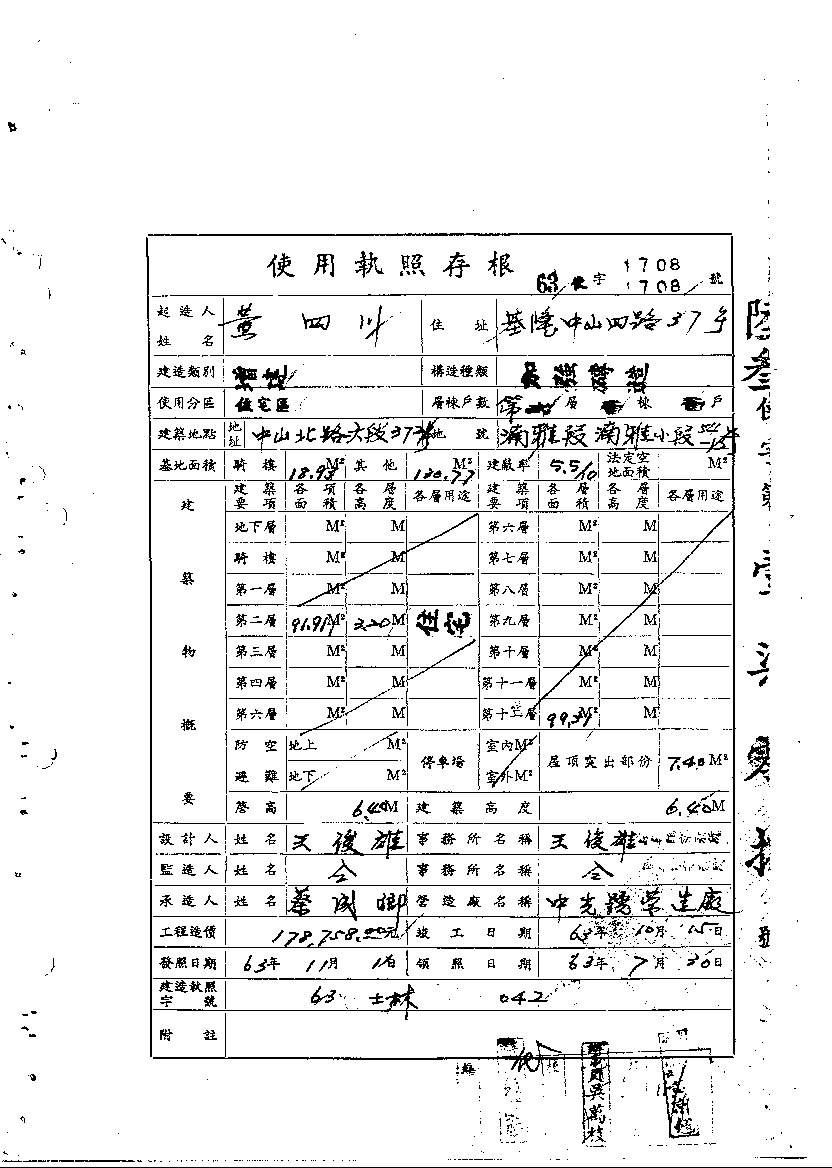 使用執照存根
63 使字 1708 號
1708
起造人姓名 黃四川 住址 基隆中山四路37号
建造類別 增建 構造種類 加強磚造
使用分區 住宅區 層棟戶數 第 層 棟 戶
建築地點 地址 中山北路六段373 地號 湳雅段湳雅小段
基地面積 騎樓 18.93 M² 其他 130.77 M² 建蔽率 5.5/10 法定空地面積 M²
建築物概要
建築要項 各項面積 各層高度 各層用途 建築要項 各項面積 各層高度 各層用途
地下層 M² M 第六層 M² M
騎樓 M² M 第七層 M² M
第一層 M² M 第八層 M² M
第二層 91.91 M² 3.20 M 住宅 第九層 M² M
第三層 M² M 第十層 M² M
第四層 M² M 第十一層 M² M
第六層 M² M 第十二層 99.31 M² M
防空避難 地上 M² 停車場 室內 M² 屋頂突出部份 7.40 M²
地下 M² 室外 M²
簷高 6.40 M 建築高度 6.40 M
設計人 姓名 王俊雄 事務所名稱 王俊雄
監造人 姓名 仝 事務所名稱 仝
承造人 姓名 蔡 卿 營造廠名稱 中光 營造廠
工程造價 178,758.00元 竣工日期 63年10月15日
發照日期 63年11月 日 領照日期 63年7月30日
建造執照字號 63 士林 042
附註
吳萬枝